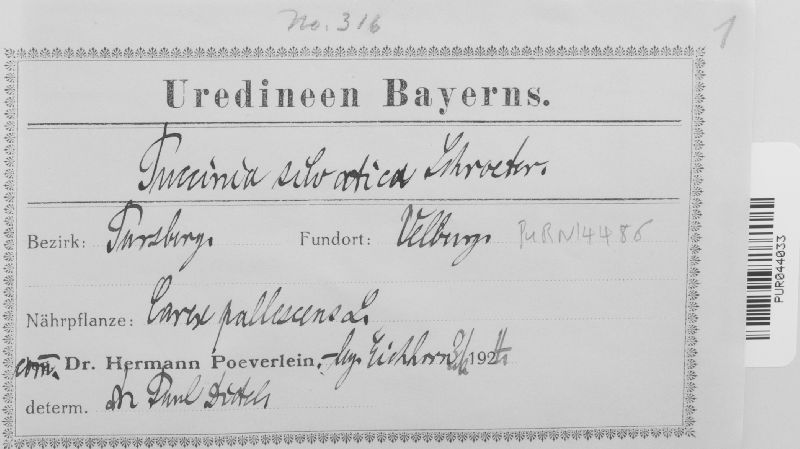 No. 316
1
Uredineen Bayerns.
Puccinia silvatica Schroeter.
Bezirk: Parsberg. Fundort: Velburg. PURN14486
Nährpflanze: Carex pallescens L.
com. Dr. Hermann Poeverlein, – leg. Eichhorn 192
determ. Dr Paul Dietel.
PUR044033